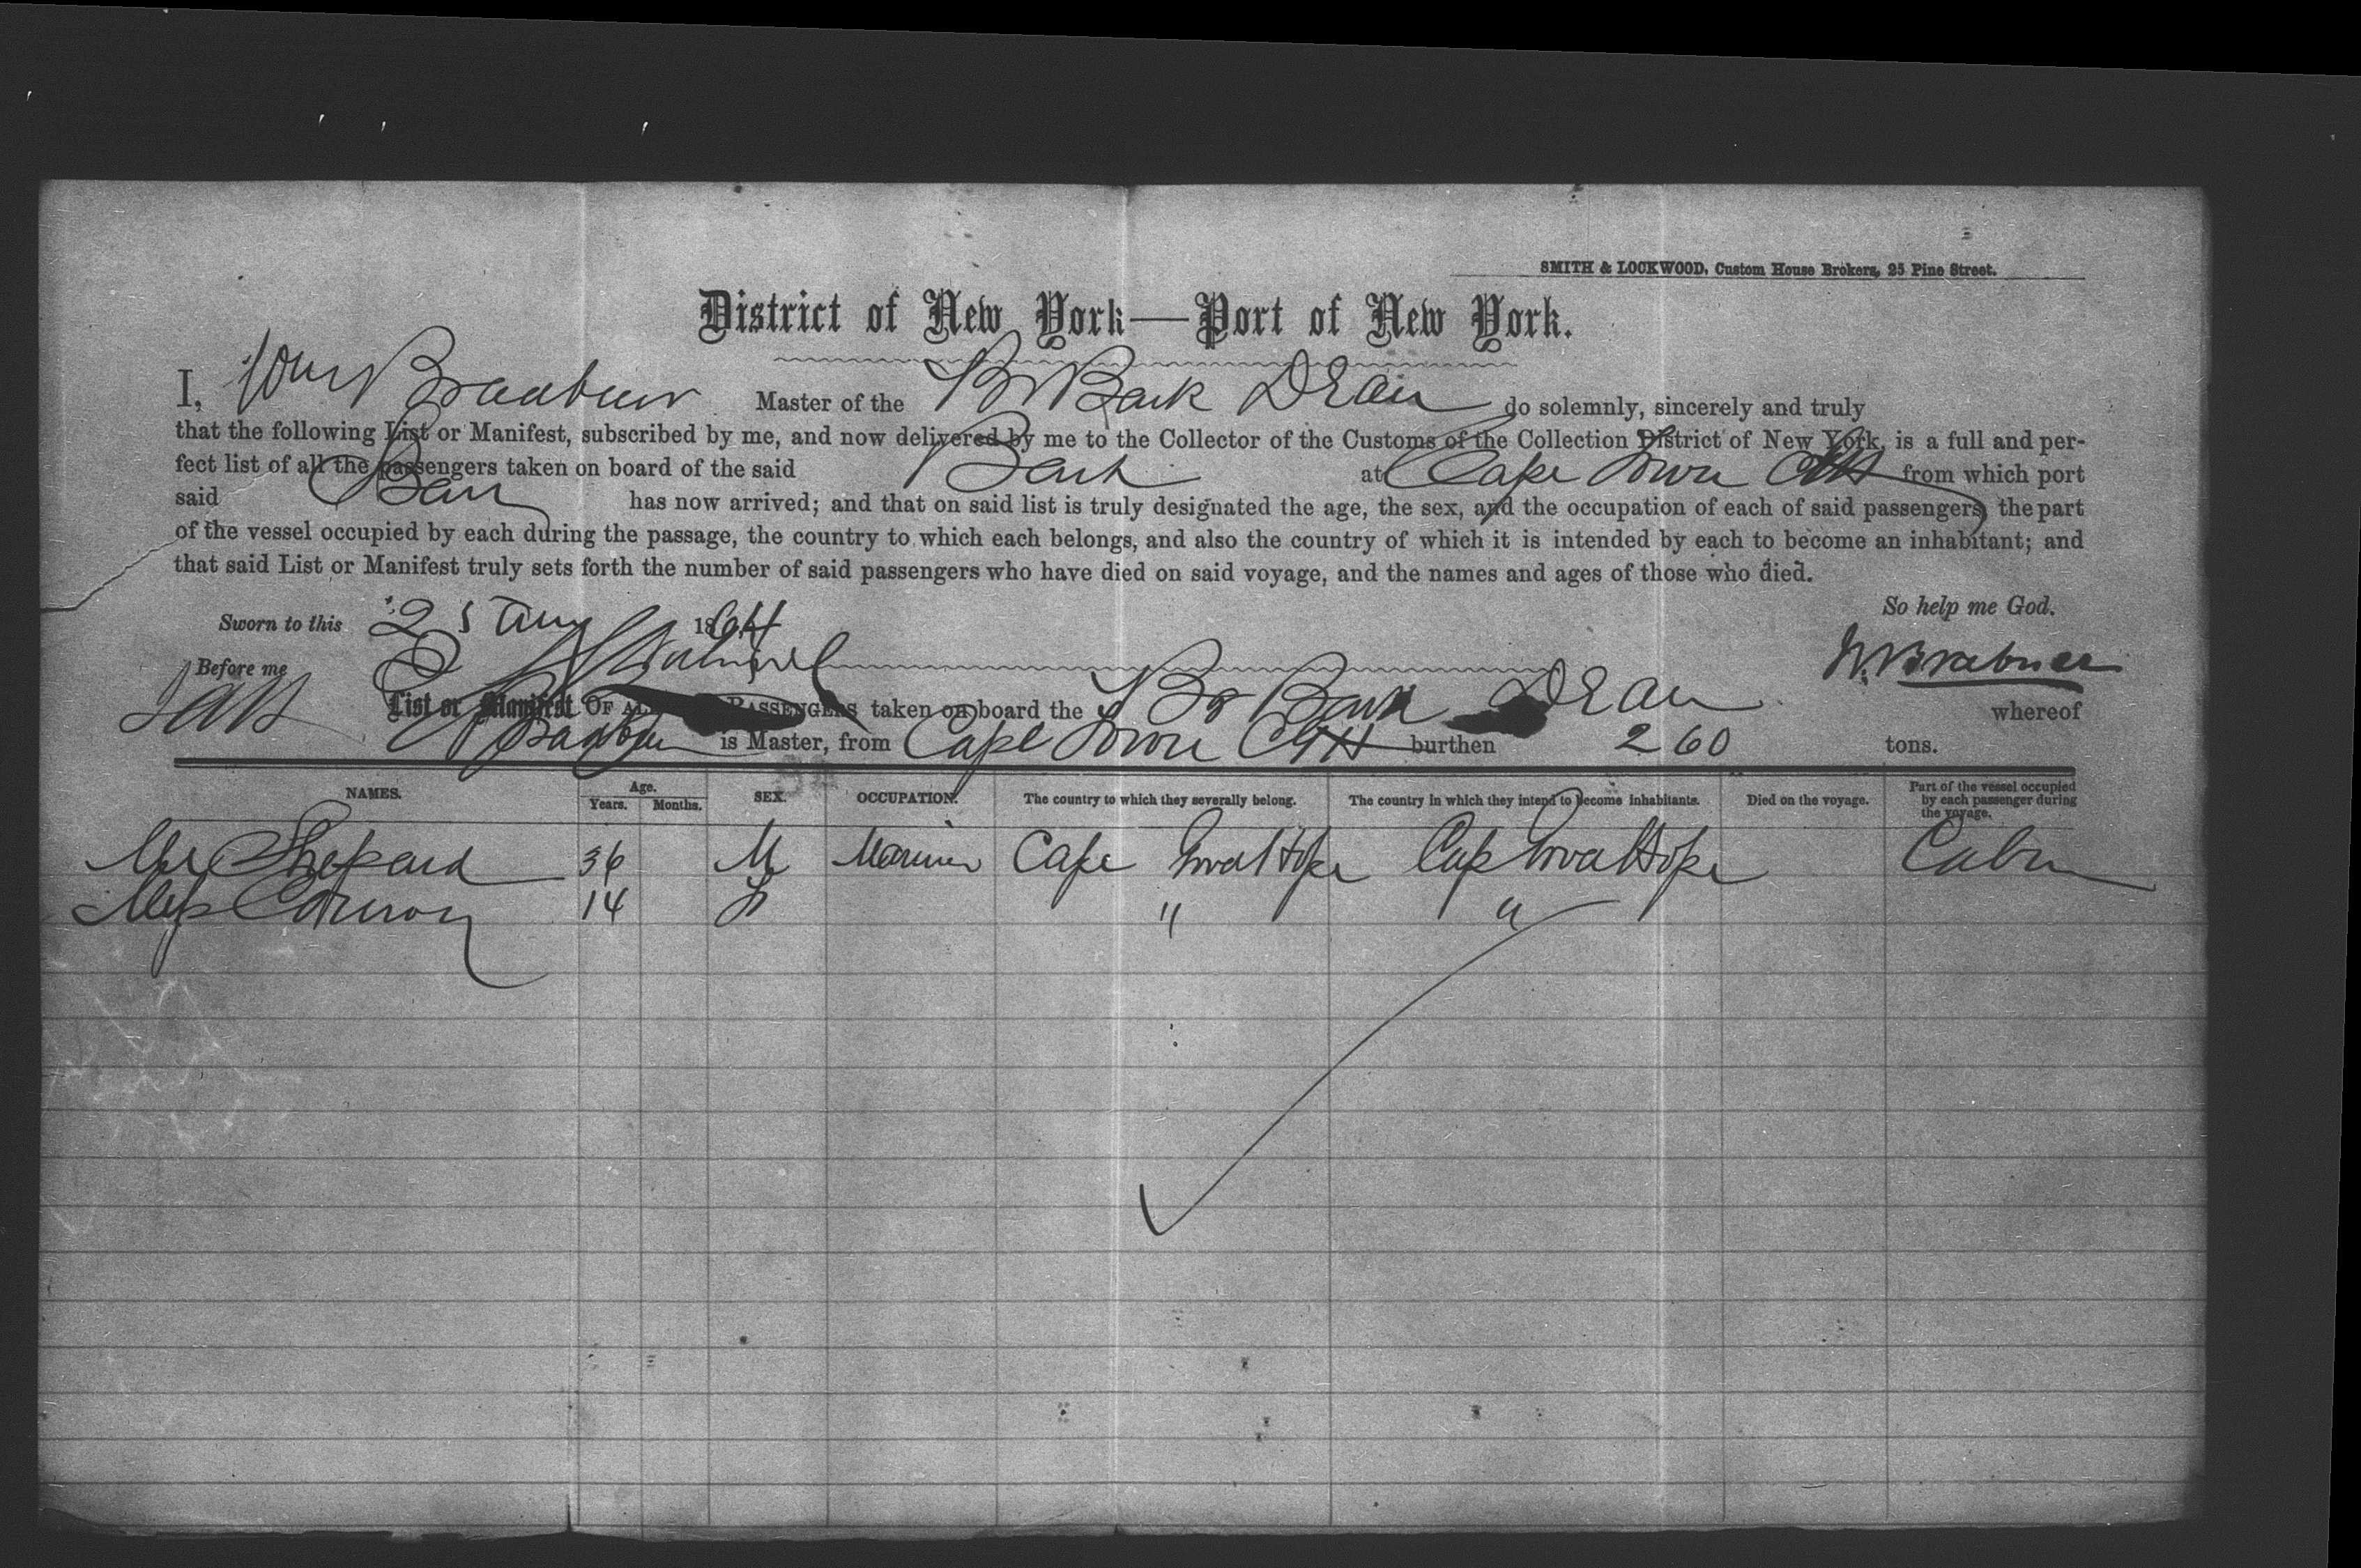 SMITH & LOCKWOOD, Custom House Brokers, 25 Pine Street.
District of New York—Port of New York.
I, Wm Brabner Master of the Br Bark Dean do solemnly, sincerely and truly
that the following List or Manifest, subscribed by me, and now delivered by me to the Collector of the Customs of the Collection District of New York, is a full and per-
fect list of all the passengers taken on board of the said Bark at Cape Town CGH from which port
said Bark has now arrived; and that on said list is truly designated the age, the sex, and the occupation of each of said passengers, the part
of the vessel occupied by each during the passage, the country to which each belongs, and also the country of which it is intended by each to become an inhabitant; and
that said List or Manifest truly sets forth the number of said passengers who have died on said voyage, and the names and ages of those who died.
So help me God.
Sworn to this 25 Aug 1864
Before me
W. Brabner
List or Manifest OF ALL PASSENGERS taken on board the Br Bark Dean whereof
Brabner is Master, from Cape Town CGH burthen 260 tons.
NAMES. Age. Years. Months. SEX. OCCUPATION. The country to which they severally belong. The country in which they intend to become inhabitants. Died on the voyage. Part of the vessel occupied by each passenger during the voyage.
Mr Shepard 36 M Mariner Cape Good Hope Cape Good Hope Cabin
Miss Conroy 14 F " "